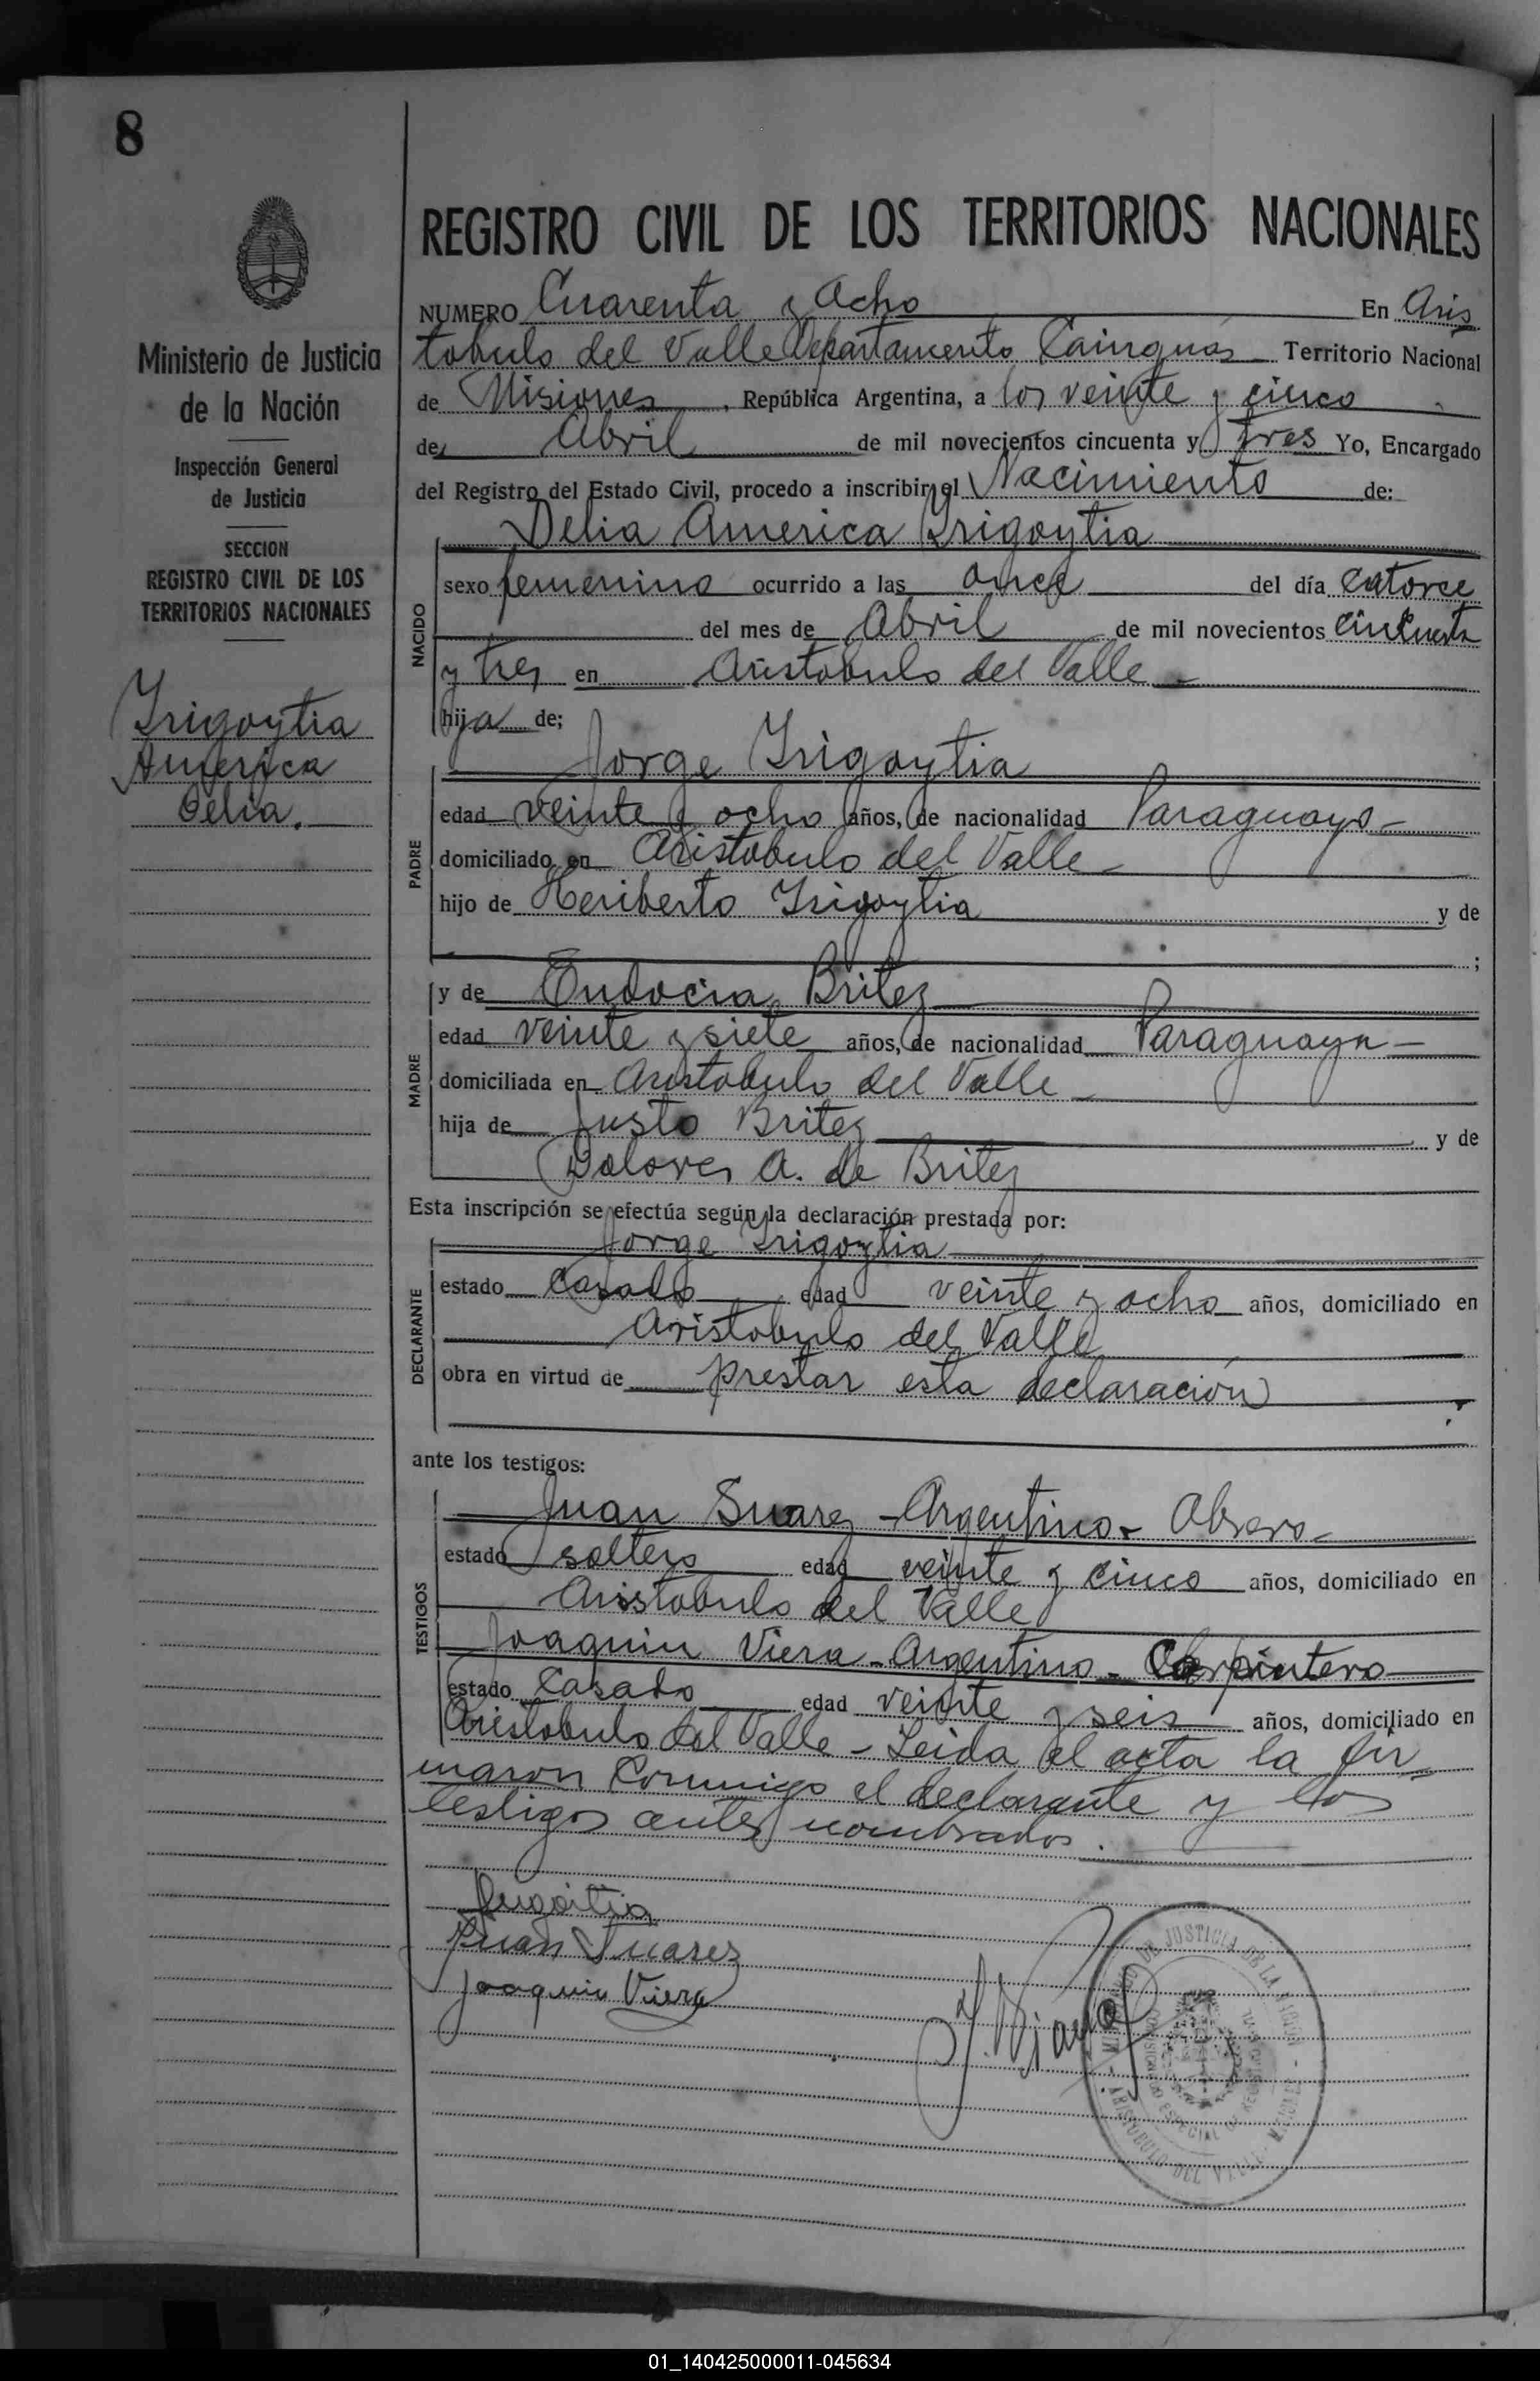 8
REGISTRO CIVIL DE LOS TERRITORIOS NACIONALES
Ministerio de Justicia
de la Nación
Inspección General
de Justicia
SECCION
REGISTRO CIVIL DE LOS
TERRITORIOS NACIONALES
Irigoytia
America
Delia.
NUMERO Cuarenta y Ocho En Aris
tobulo del Valle Departamento Cainguás Territorio Nacional
de Misiones, República Argentina, a los veinte y cinco
de Abril de mil novecientos cincuenta y tres Yo, Encargado
del Registro del Estado Civil, procedo a inscribir el Nacimiento de:
Delia America Irigoytia
NACIDO
sexo femenino ocurrido a las once del día catorce
del mes de Abril de mil novecientos cincuenta
y tres en Aristobulo del Valle
hija de;
Jorge Irigoytia
PADRE
edad veinte y ocho años, de nacionalidad Paraguayo
domiciliado en Aristobulo del Valle
hijo de Heriberto Irigoytia y de
;
y de Eudocia Britez
MADRE
edad veinte y siete años, de nacionalidad Paraguaya
domiciliada en Aristobulo del Valle
hija de Justo Britez y de
Dolores A. de Britez
Esta inscripción se efectúa según la declaración prestada por:
Jorge Irigoytia
DECLARANTE
estado casado edad veinte y ocho años, domiciliado en
Aristobulo del Valle
obra en virtud de prestar esta declaración
ante los testigos:
Juan Suarez - Argentino - Obrero
TESTIGOS
estado soltero edad veinte y cinco años, domiciliado en
Aristobulo del Valle
Joaquin Viera - Argentino - Carpintero
estado Casado edad veinte y seis años, domiciliado en
Aristobulo del Valle - Leida el acta la fir-
maron Conmigo el declarante y los
testigos antes nombrados.
Irigoitia
Juan Suarez
Joaquin Viera
JUSTICIA DE LA NACION
ARISTOBULO DEL VALLE - MISIONES
01_140425000011-045634